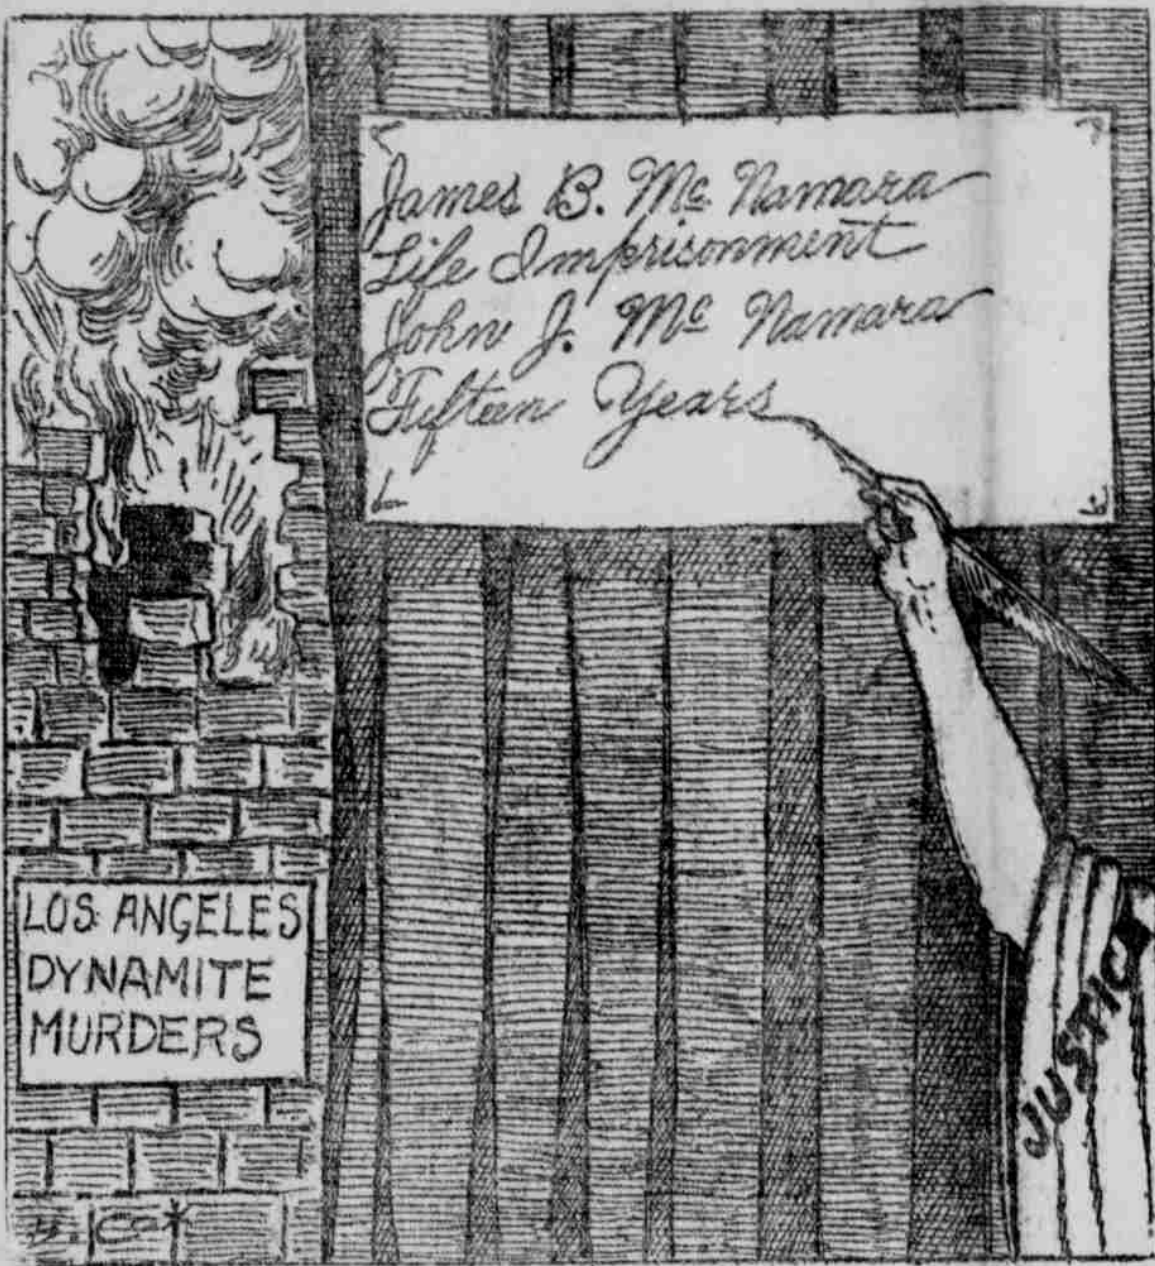 James B. Mc Namara
Life Imprisonment
John J. Mc Namara
Fifteen Years
LOS ANGELES
DYNAMITE
MURDERS
JUSTICE